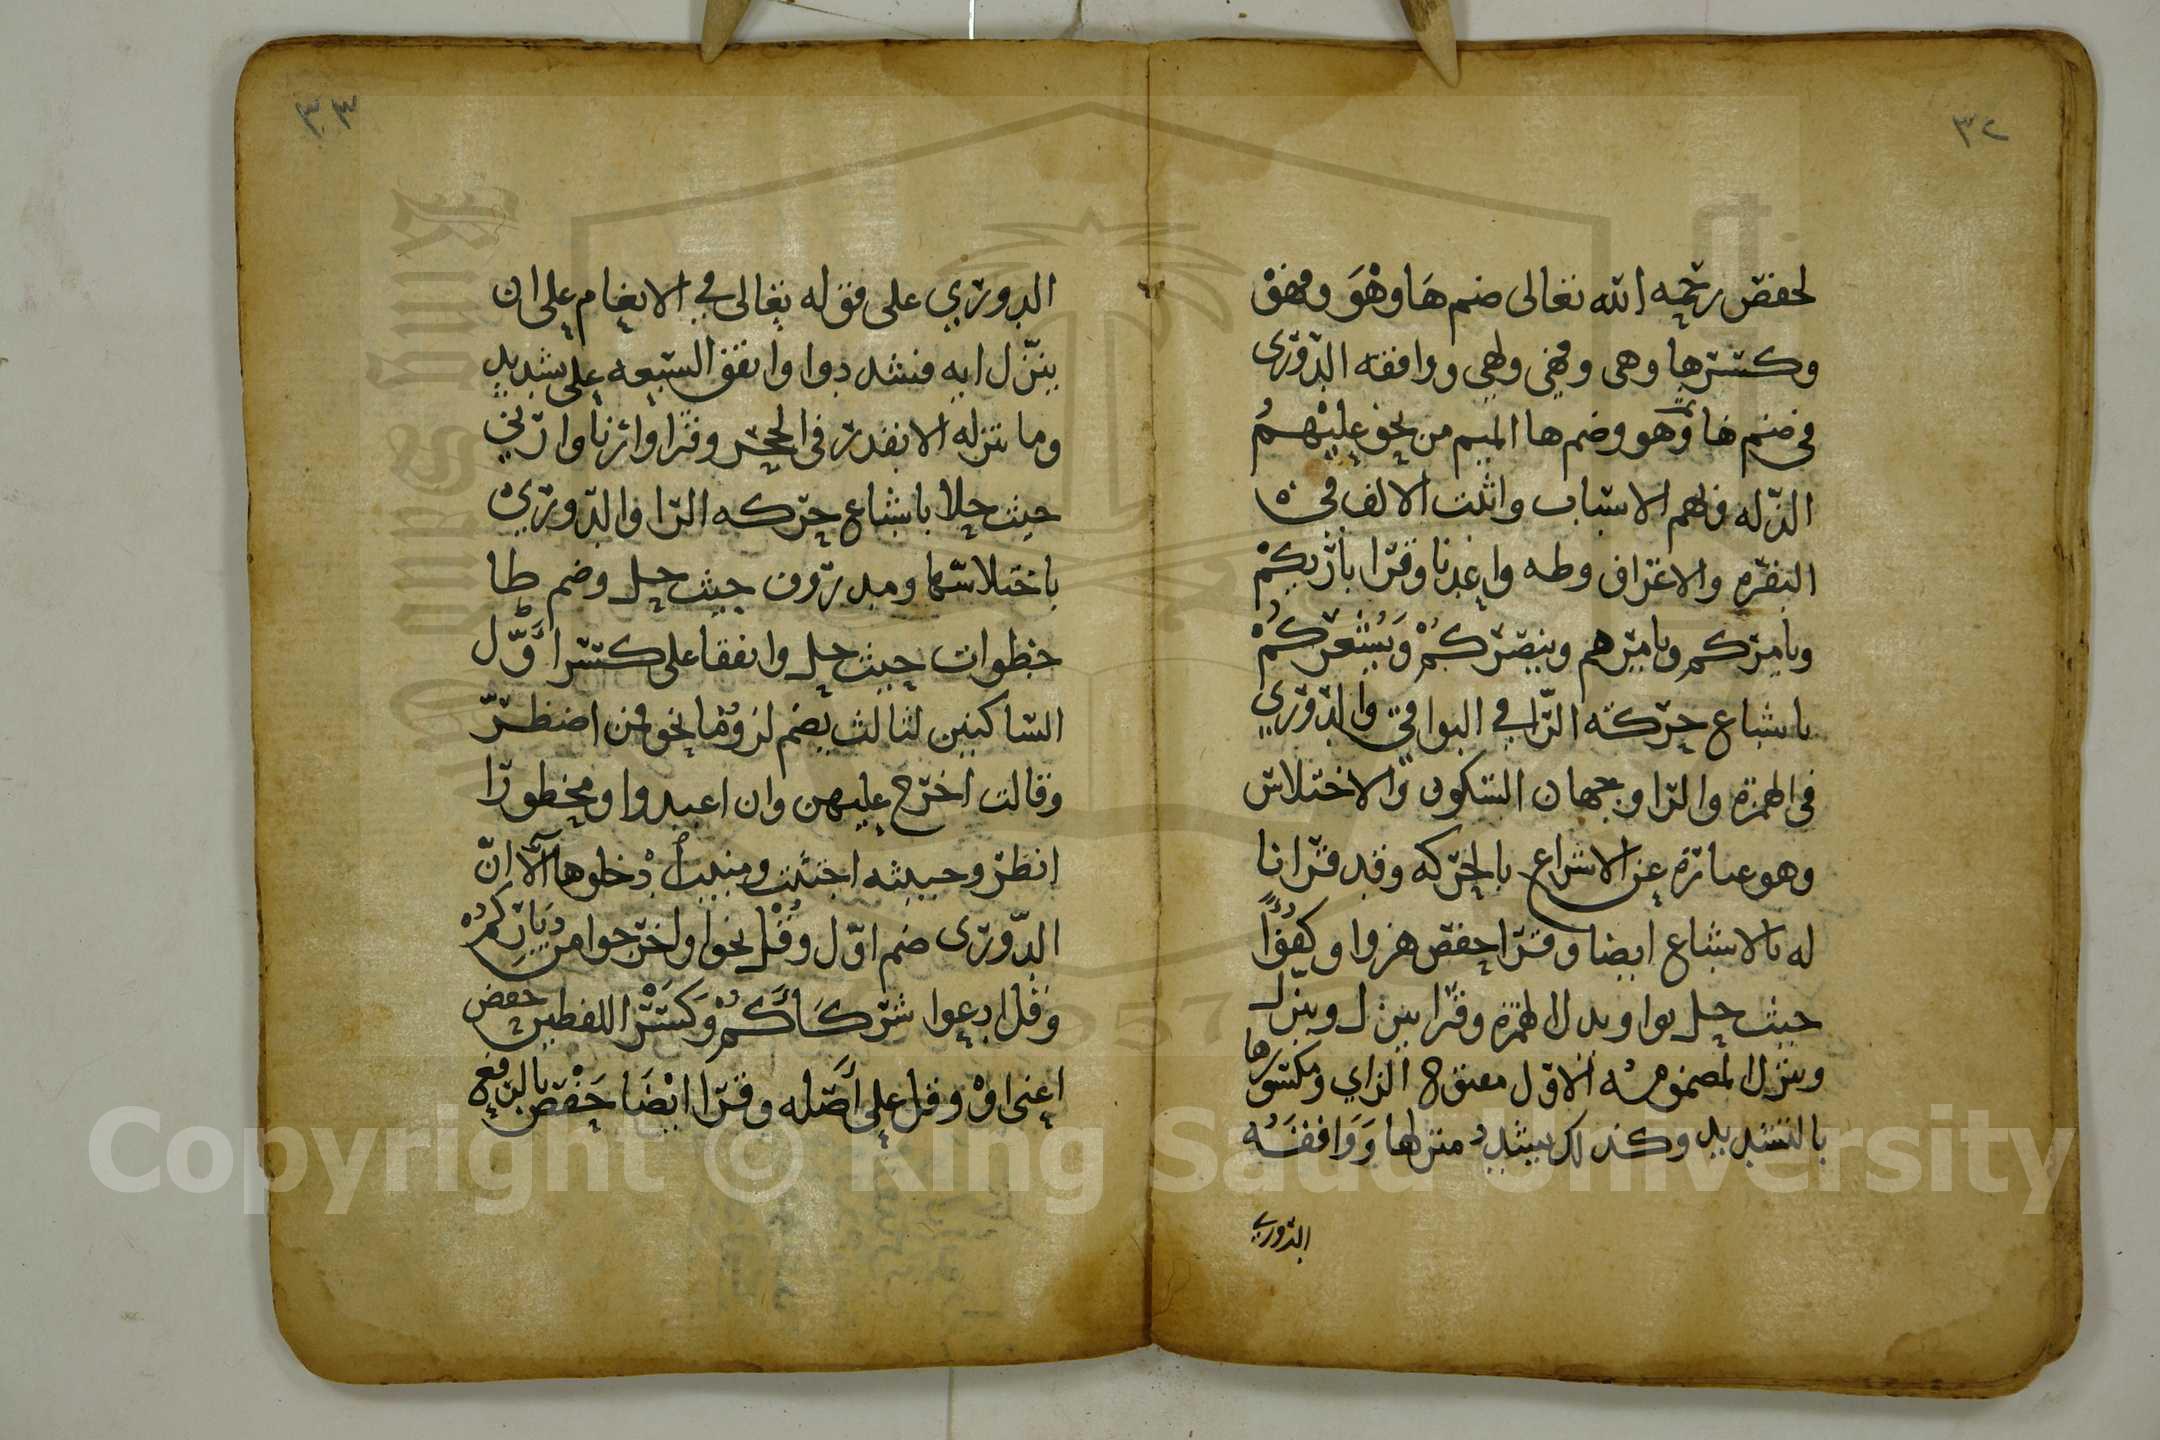 ٣٢
لحفص رحمه الله تعالى ضم هَا وهْوَ وفهْوَ
وكسرها وهى وفهي ولهي ووافقه الدورى
في ضم ها ثم هو وضم ها الميم من نحو عليْهمُ
الذله وبهم الاسباب واثبت الالف في
البقره والاعراف وطه واعدنا وقرا بارئكم
ويامركم ويامرهم وينصركمْ وَيُشعركمْ
باشباع حركة الرا في البواقي والدوري
في الهمزه والرا وجهان السكون والاختلاس
وهو عباره عن الاسراع بالحركه وقد قرانا
له بالاشباع ايضا وقرا حفص هزوا وكفُوًا
حيث حل بواو بدل الهمزه وقرا ينزل وينزل
وننزل المضمومه الاول مفتوح الزاي ومكسورها
بالتشديد وكذلك يشدد منزلها وَوَافقَهُ
الدوري
٣٣
الدوري على قوله تعالى في الانعام على ان
ينزل ايه فشددوا واتفق السبعه على تشديد
وما ننزله الا بقدر في الحجر وقرا وارنا وارني
حيث حلا باشباع حركه الرا والدوري
باختلاسها ومد رؤف حيث حل وضم طا
خطوات حيث حل واتفقا على كسر اوَّل
الساكنين لثالث يضم لزومًا نحو فمن اضطر
وقالت اخرج عليهن وان اعبدوا ومحظورا
انظر وخبيثه اجتثت ومنيب ادخلوها الا ان
الدورى ضم اوّل وقُل نحو او اخرجوا من دِيَارِكمْ
وَقل ادعوا شركَاءَكُمْ وَكَسَرَ اللفظين حفص
اعنى اوْ وقل على أصْله وقرا ايْضَا حَفْص بالرفع